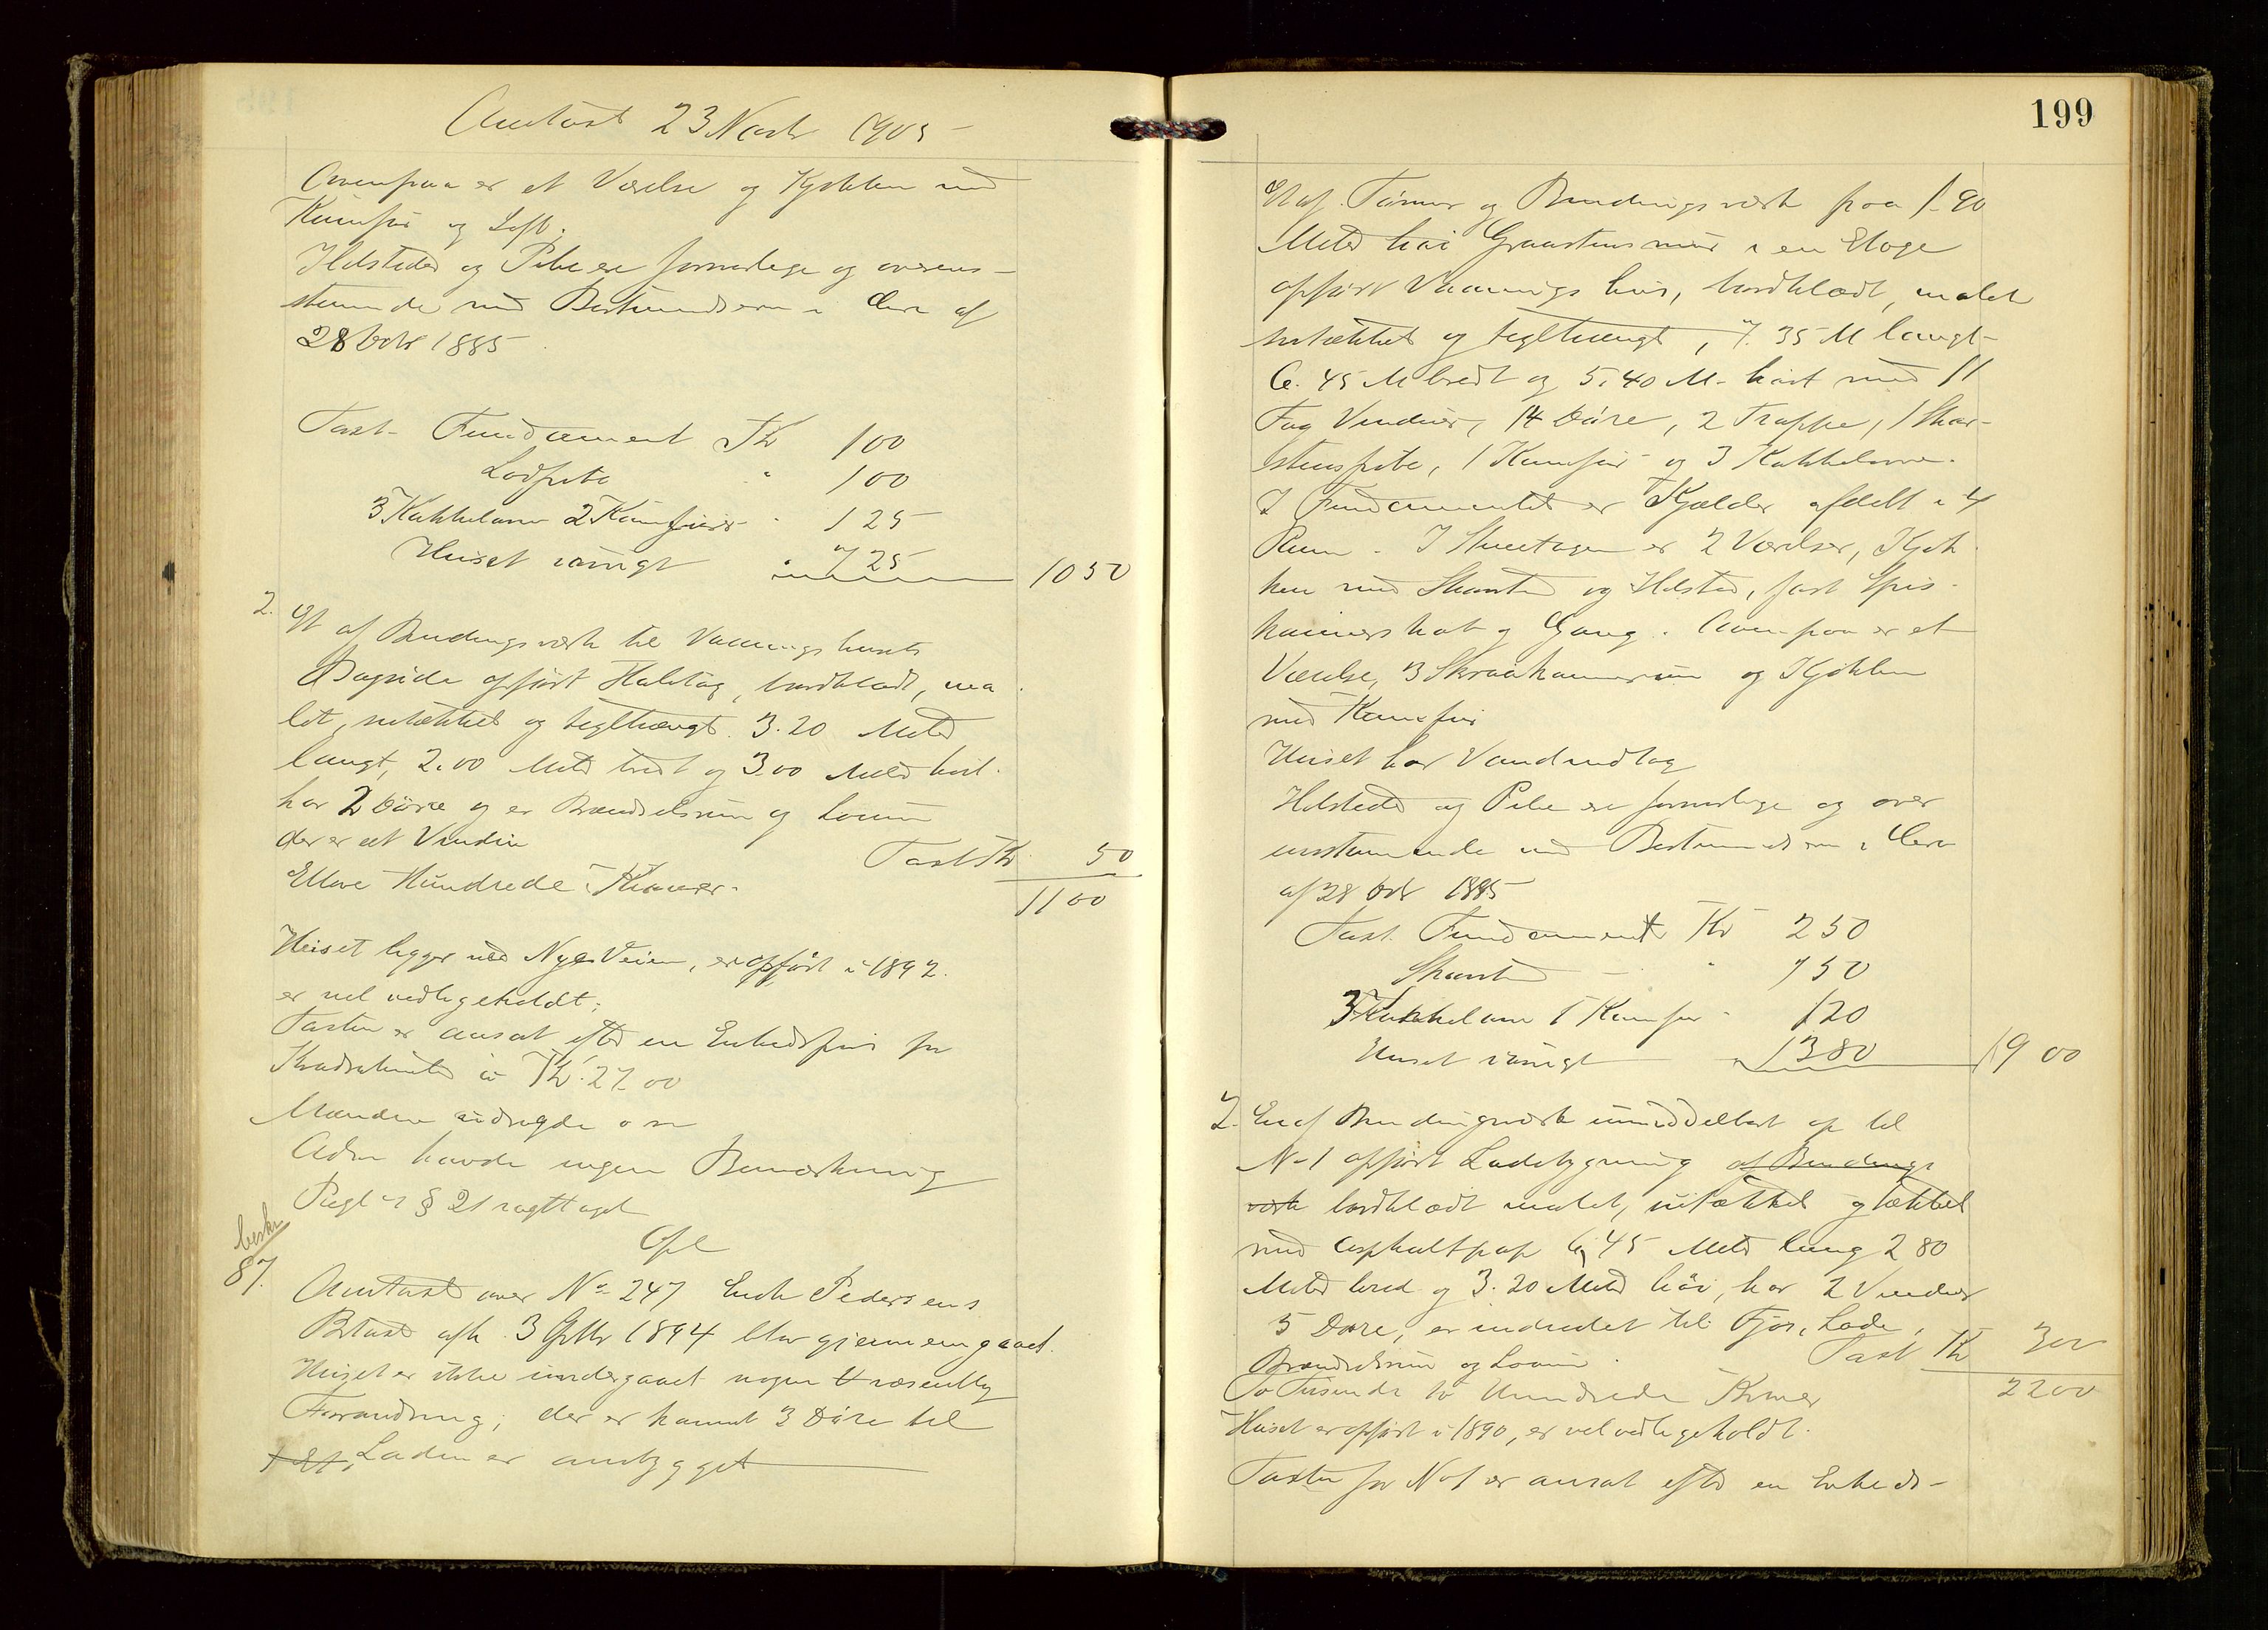 Omtaxt 23 Novbr 1905
Ovenpaa er et Værelse og Kjøkken med
Komfur og Loft.
Ildsteder og Pibe ere forsvarlige og overens-
stemmende med Bestemmelserne i Cirk af
28 Octbr 1885
Taxt. Fundament Kr 100
Lodpibe " 100
3 Kakkelovne 2 Komfurer " 125
Huset iøvrigt " 725 1050
2. Et af Bindingsværk til Vaaningshusets
Bagside opført Halvtag, bordklædt, ma
let, næktækket og teglhængt. 3.20 Meter
langt, 2.00 Meter bredt og 3.00 Meter høit.
har 2 Døre og er Brændselsrum og Locum
der er et Vindu
Taxt Kr. 50
Elleve Hundrede Kroner. 1100
Huset ligger ved Nye Veien, er opført i 1892.
er vel vedligeholdt.
Taxten er ansat efter en Enhedspris pr
Kvadratmeter à Kr. 27.00
Mændene
havde ingen Bemærkning
Regl s § 21 iagttaget
Opl
beskr
87.
Omtaxt over No 247 Endr Pedersens
Br taxt afh. 3 Septbr 1894 blev gjennemgaaet.
Huset er ikke undergaaet nogen væsentlig
Forandring; der er kommet 3 Døre til
Laden er ombygget
199
Et af Tømmer og Bindingsværk paa 1.90
Meter høi Graastensmur i en Etage
opført Vaaningshus, bordklædt, malet
nætækket og teglhængt, 7.35 M langt-
6.45 M bredt og 5.40 M. høit med 11
Fag Vinduer, 14 Døre, 2 Trapper, 1 Skor-
stenspibe, 1 Komfur og 3 Kakkelovne.
I Fundamentet er Kjælder afdelt i 4
Rum. I Stueetagen er 2 Værelser, Kjøk
ken med Skorsten og Ildsted, fast Spis-
kammerskab og Gang. Ovenpaa er et
Værelse, 3 Skraakammerrum og Kjøkken
med Komfur
Huset har Vandindlag
Ildsteder og Pibe ere forsvarlige og over
ensstemmende med Bestemmelserne i Cirk
af 28 Octbr 1885
Taxt. Fundament Kr 250
Skorsten " 150
3 Kakkelovne 1 Komfur " 120
Huset iøvrigt " 1380 1900
2. En af Bindingsværk umiddelbart op til
No 1 opført Ladebygning af Bindings
værk bordklædt malet, nætækket og tækket
med Asphaltpap 6.45 Meter lang 2 80
Meter bred og 3.20 Meter høi, har 2 Vinduer
5 Døre, er indredet til Fjøs, Lade,
Brændselsrum og Locum. Taxt Kr 300
To Tusinde to Hundrede Kroner 2200
Huset er opført i 1890, er vel vedligeholdt.
Taxten for No 1 er ansat efter en Enheds-